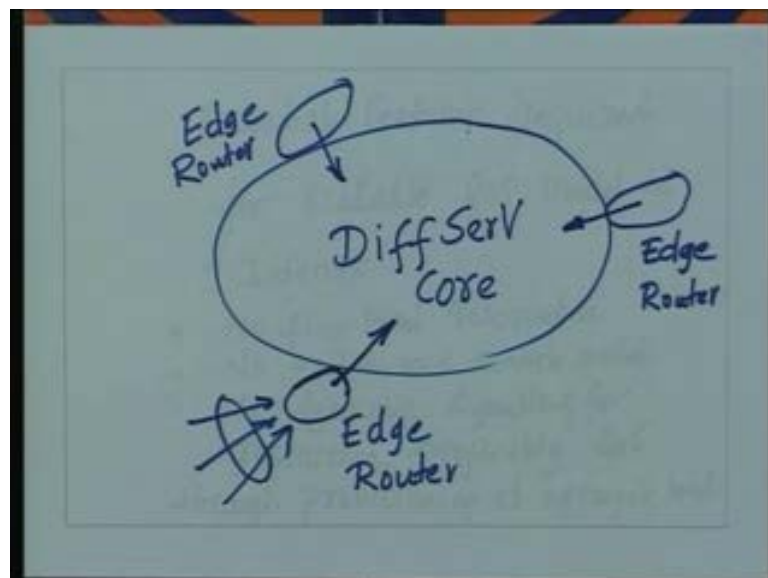 Edge
Router
DiffServ
Core
Edge
Router
Edge
Router